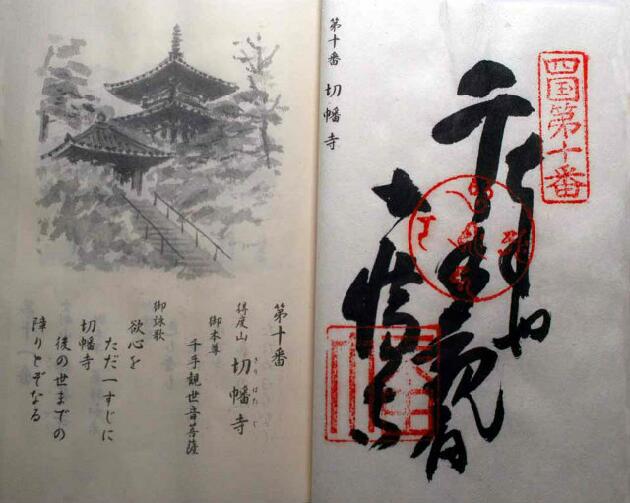 四国第十番
切幡寺
第十番 切幡寺
第十番
得度山 切幡寺
きりはたじ
御本尊
千手観世音菩薩
御詠歌
欲心を
ただ一すじに
切幡寺
後の世までの
障りとぞなる